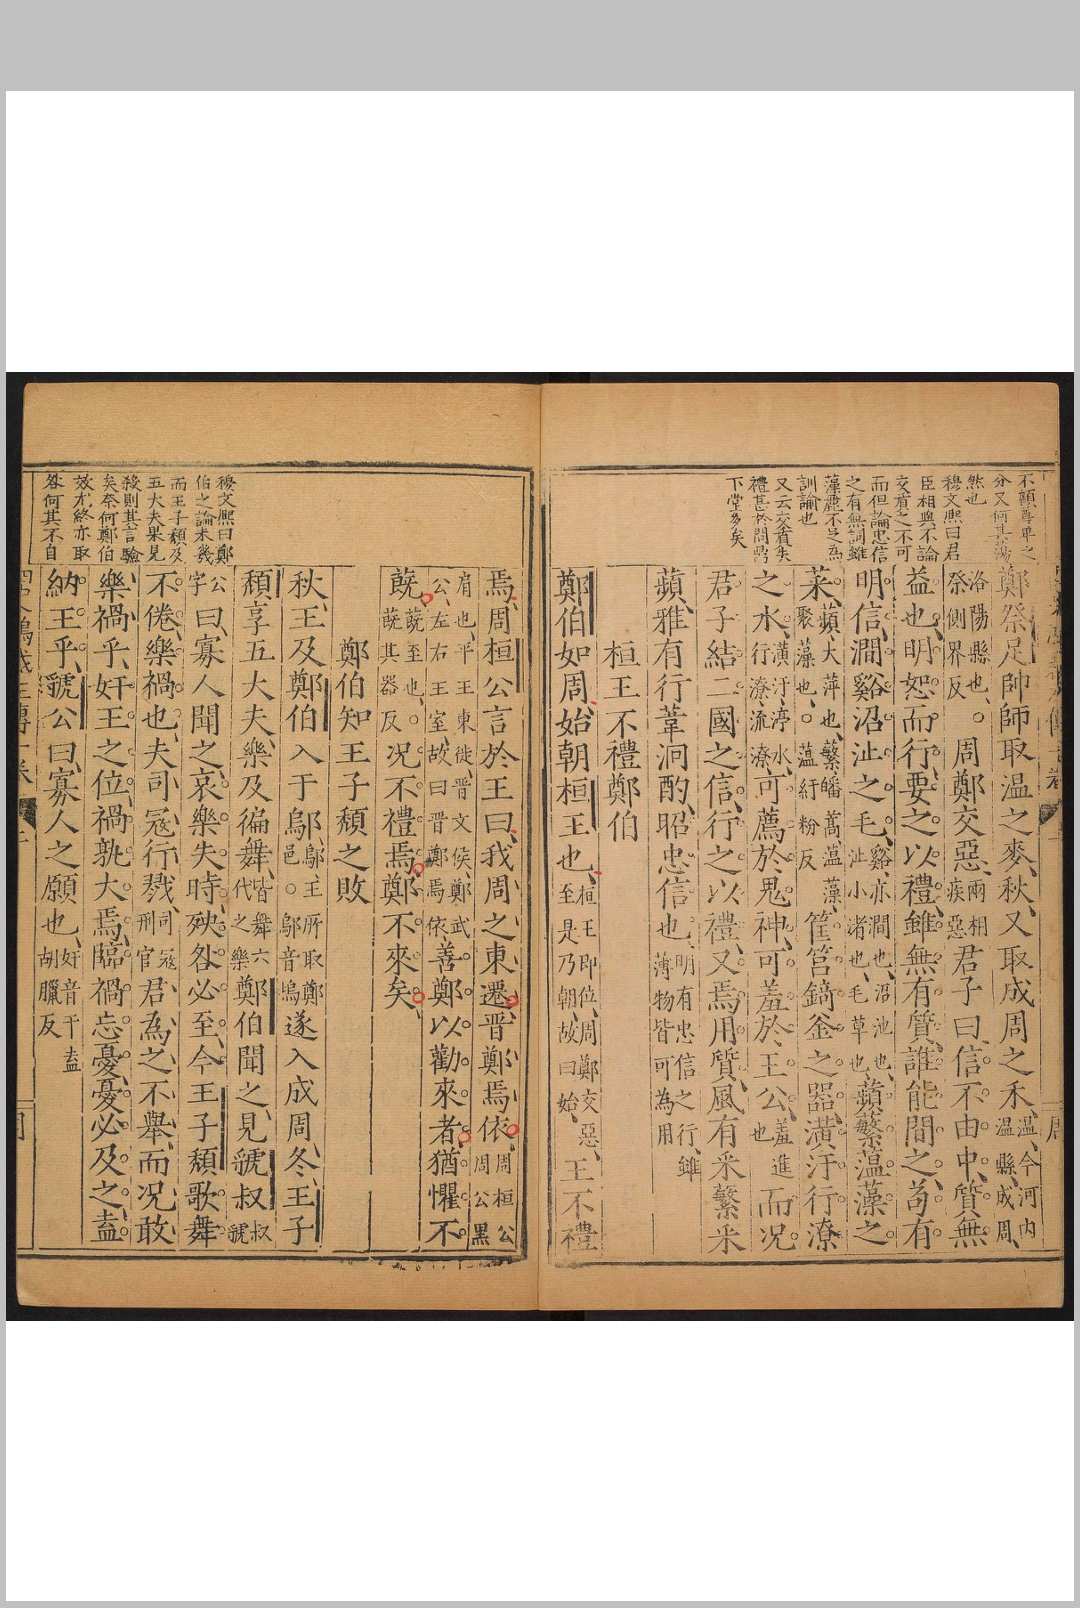 不顧尊卑之
分又何其悖
然也
穆文熙曰君
臣相與不論
交質之不可
而但論忠信
之有無詞雖
藻麗不足為
訓諭也
又云交質矣
禮甚於問鼎
下堂多矣
鄭祭足帥師取温之麥、秋、又取成周之禾、温、今河内温縣、成周、
洛陽縣也、祭側界反○周鄭交惡、兩相疾惡君子曰、信不由中、質無
益也、明恕而行、要之以禮、雖無有質、誰能間之、苟有
明信、澗谿沼沚之毛、谿亦澗也、沼池也、沚小渚也、毛草也蘋蘩薀藻之
菜、蘋、大萍也、蘩皤蒿、薀藻、聚藻也、薀紆粉反筐筥錡釜之器、潢汙行潦
之水、潢汙、渟水、行潦、流潦可薦於鬼神、可羞於王公、羞進也而況
君子結二國之信、行之以禮、又焉用質、風有采蘩采
蘋、雅有行葦泂酌、昭忠信也、明有忠信之行、雖薄物皆可為用
桓王不禮鄭伯
鄭伯如周、始朝桓王也、桓王即位、周鄭交惡、至是乃朝、故曰始、王不禮
焉、周桓公言於王曰、我周之東遷、晋鄭焉依、周桓公、周公黑
肩也、平王東徙、晋文侯、鄭武公、左右王室、故曰晋鄭焉依善鄭以勸來者、猶懼不
蔇、蔇至也、蔇其器反況不禮焉、鄭不來矣、
鄭伯知王子頹之敗
秋、王及鄭伯入于鄔、鄔、王所取鄭邑○鄔音塢遂入成周、冬、王子
頹享五大夫、樂及徧舞、皆舞六代之樂鄭伯聞之、見虢叔、叔虢
公字曰、寡人聞之、哀樂失時、殃咎必至、今王子頹歌舞
不倦、樂禍也、夫司寇行戮、司寇刑官君為之不舉、而况敢
樂禍乎、奸王之位、禍孰大焉、臨禍忘憂、憂必及之、盍
納王乎、虢公曰、寡人之願也、奸音干、盍胡臘反
穆文熙曰鄭
伯之論未幾
而王子頹及
五大夫果見
殺則其言驗
矣奈何鄭伯
效尤終亦取
咎何其不自